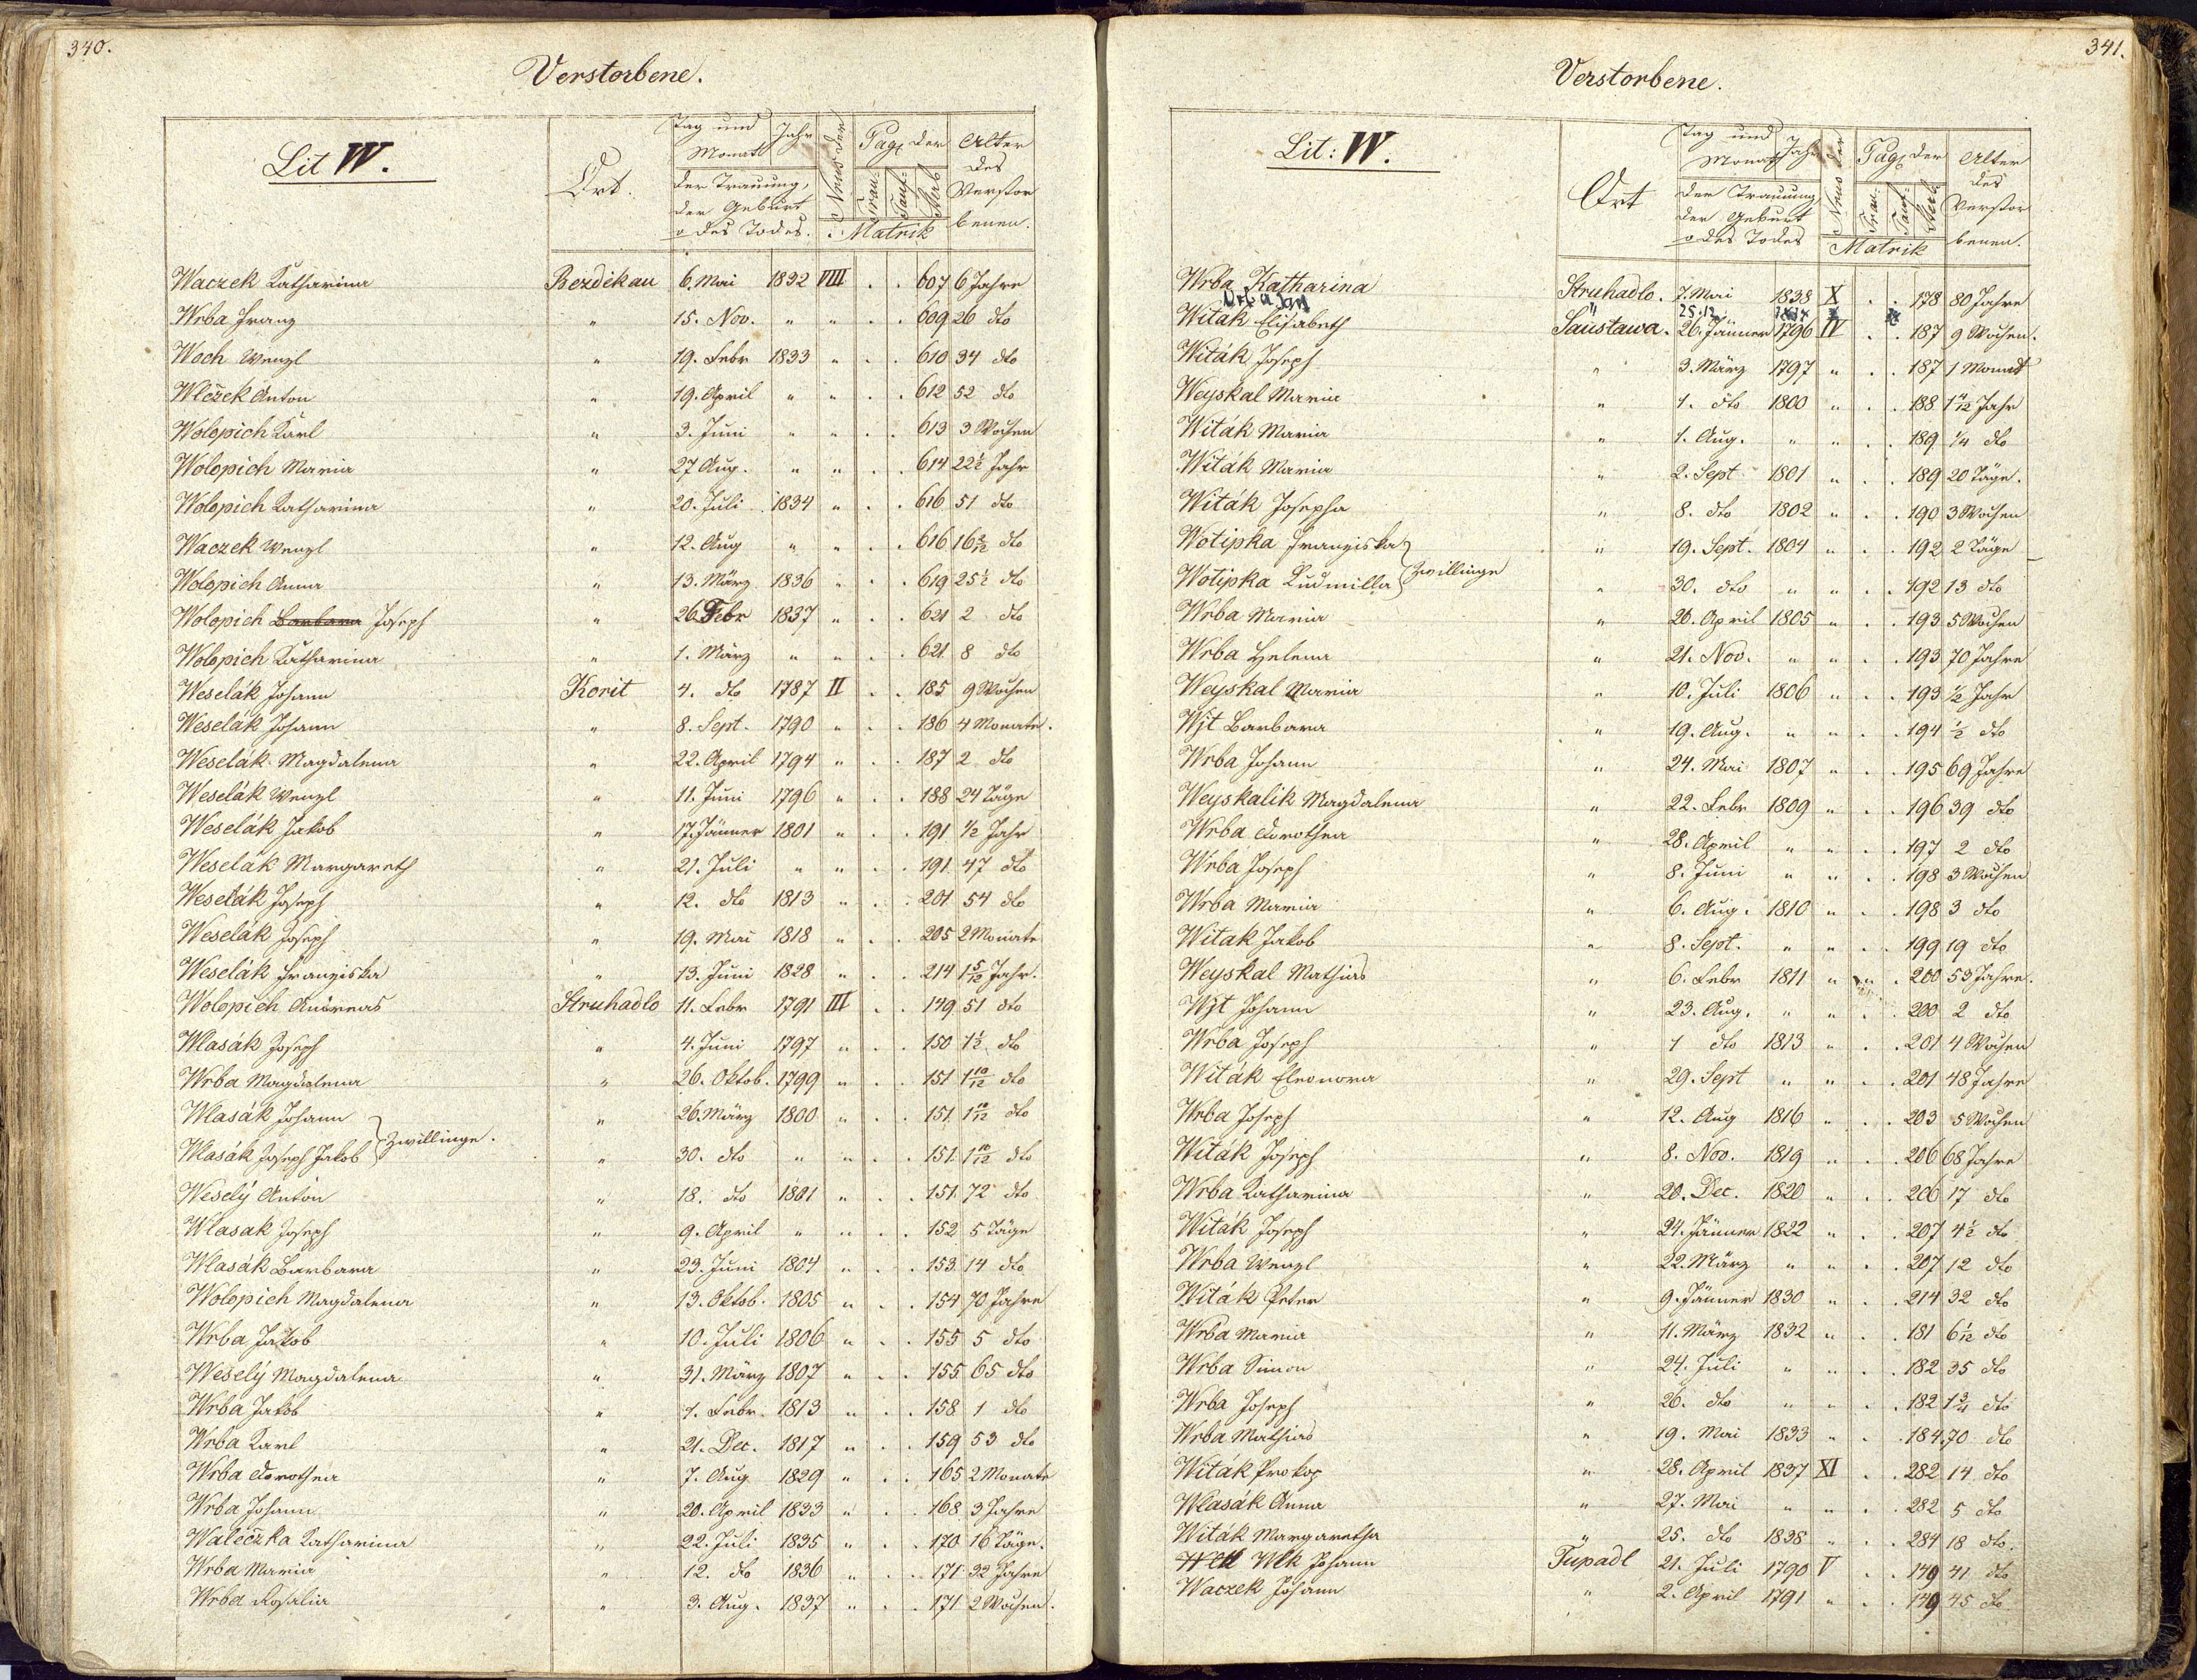 340.
Verstorbene.
Lit W.
Ort.
Tag und Monat
Jahr
der Trauung, der Geburt o des Todes.
Nrus der
Pag der
Trau-
Tauf-
Sterb
Matrik
Alter des Verstorbenen.
Waczek Katharina Bezdikau 6. Mai 1832 VIII . . 607 6 Jahre
Wrba Franz " 15. Nov. " " . . 609 26 dto
Woch Wenzl " 19. Febr 1833 " . . 610 34 dto
Wlczek Anton " 19. April " " . . 612 52 dto
Wolopich Karl " 3. Juni " " . . 613 3 Wochen
Wolopich Maria " 27 Aug. " " . . 614 22½ Jahr
Wolopich Katharina " 20. Juli 1834 " . . 616 51 dto
Waczek Wenzl " 12. Aug " " . . 616 dto
Wolopich Anna " 13. März 1836 " . . 619 25½ dto
Wolopich Barbara Joseph " 26. Febr 1837 " . . 621 2 dto
Wolopich Katharina " 1. März " " . . 621 8 dto
Weselák Johann Korit 4. dto 1787 II . . 185 9 Wochen
Weselák Johann " 8. Sept. 1790 " . . 186 4 Monate.
Weselák Magdalena " 22. April 1794 " . . 187 2 dto
Weselák Wenzl " 11. Juni 1796 " . . 188 24 Täge
Weselák Jakob " 17. Jänner 1801 " . . 191 ½ Jahr
Weselák Margareth " 21. Juli " " . . 191 47 dto
Weselák Joseph " 12. dto 1813 " . . 201 54 dto
Weselák Joseph " 19. Mai 1818 " . . 205 2 Monate
Weselák Franziska " 13. Juni 1828 " . . 214 1 5/12 Jahr.
Wolopich Andreas Struhadlo 11. Febr 1791 III . . 149 51 dto
Wlasák Joseph " 4. Juni 1797 " . . 150 1½ dto
Wrba Magdalena " 26. Oktob. 1799 " . . 151 1 10/12 dto
Wlasák Johann " 26. März 1800 " . . 151 1 10/12 dto
Zwillinge.
Wlasák Joseph Jakob " 30. dto " " . . 151 1 10/12 dto
Weselý Anton " 18. dto 1801 " . . 151 72 dto
Wlasak Joseph " 9. April " " . . 152 5 Täge
Wlasák Barbara " 23. Juni 1804 " . . 153 14 dto
Wolopich Magdalena " 13. Oktob. 1805 " . . 154 70 Jahre
Wrba Jakob " 10. Juli 1806 " . . 155 5 dto
Weselý Magdalena " 31. März 1807 " . . 155 65 dto
Wrba Jakob " 1. Febr. 1813 " . . 158 1 dto
Wrba Karl " 21. Dec. 1817 " . . 159 53 dto
Wrba Dorothea " 7. Aug 1829 " . . 165 2 Monate
Wrba Johann " 20. April 1833 " . . 168 3 Jahre
Waleczka Katharina " 22. Juli 1835 " . . 170 16 Täge.
Wrba Maria " 12. dto 1836 " . . 171 32 Jahre
Wrba Rosalia " 3. Aug. 1837 " . . 171 2 Wochen.
341.
Verstorbene.
Lit: W.
Ort
Tag und Monat
Jahr
der Trauung der Geburt o des Todes
Nrus der
Pag der
Trau-
Tauf-
Sterb
Matrik
Alter des Verstorbenen.
Wrba Katharina Struhadlo. 7. Mai 1838 X . . 178 80 Jahre
Vrba Jan " 25.12.
Witak Elisabeth Saustawa. 26. Jänner 1796 IV . . 187 9 Wochen.
Witák Joseph " 3. März 1797 " . . 187 1 Monat
Weyskal Maria " 1. dto 1800 " . . 188 Jahr
Witák Maria " 1. Aug. " " . . 189 ¼ dto
Witák Maria " 2. Sept 1801 " . . 189 20 Täge.
Witák Josepha " 8. dto 1802 " . . 190 3 Wochen
Wotipka Franziska " 19. Sept. 1804 " . . 192 2 Täge
Zwillinge
Wotipka Ludmilla " 30. dto " " . . 192 13 dto
Wrba Maria " 26. April 1805 " . . 193 5 Wochen
Wrba Helena " 21. Nov. " " . . 193 70 Jahre
Weyskal Maria " 10. Juli 1806 " . . 193 ½ Jahr
Wjt Barbara " 19. Aug. " " . . 194 ½ dto
Wrba Johann " 24. Mai 1807 " . . 195 69 Jahre
Weyskalik Magdalena " 22. Febr 1809 " . . 196 39 dto
Wrba Dorothea " 28. April " " . . 197 2 dto
Wrba Joseph " 8. Juni " " . . 198 3 Wochen
Wrba Maria " 6. Aug. 1810 " . . 198 3 dto
Witak Jakob " 8. Sept. " " . . 199 19 dto
Weyskal Mathias " 6. Febr 1811 " . . 200 53 Jahre.
Wjt Johann " 23. Aug. " " . . 200 2 dto
Wrba Joseph " 1 dto 1813 " . . 201 4 Wochen
Witák Eleonora " 29. Sept " " . . 201 48 Jahre
Wrba Joseph " 12. Aug 1816 " . . 203 5 Wochen
Witák Joseph " 8. Nov. 1819 " . . 206 68 Jahre
Wrba Katharina " 20. Dec. 1820 " . . 206 17 dto
Witák Joseph " 24. Jänner 1822 " . . 207 4½ dto
Wrba Wenzl " 22. März " " . . 207 12 dto
Witák Peter " 9. Jänner 1830 " . . 214 32 dto
Wrba Maria " 11. März 1832 " . . 181 6 1/12 dto
Wrba Simon " 24. Juli " " . . 182 35 dto
Wrba Joseph " 26. dto " " . . 182 1¾ dto
Wrba Mathias " 19. Mai 1833 " . . 184 70 dto
Witák Prokop " 28. April 1837 XI . . 282 14 dto
Wlasák Anna " 27. Mai " " . . 282 5 dto
Witák Margaretha " 25. dto 1838 " . . 284 18 dto.
Wlk Johann Tupadl 21. Juli 1790 V . . 149 41 dto
Waczek Johann " 2. April 1791 " . . 149 45 dto